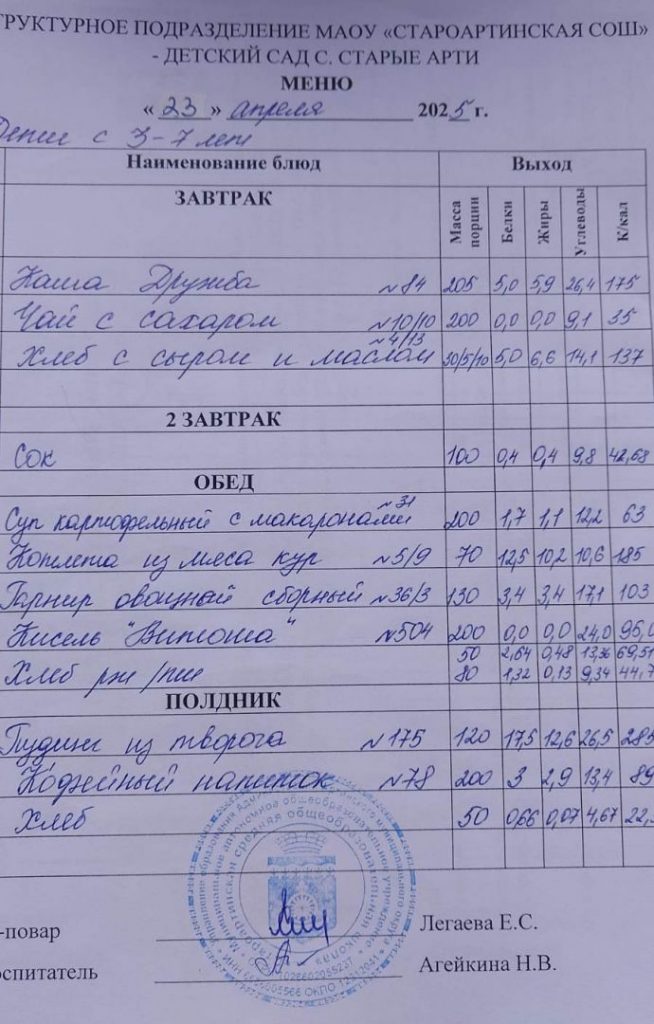 ТРУКТУРНОЕ ПОДРАЗДЕЛЕНИЕ МАОУ «СТАРОАРТИНСКАЯ СОШ»
- ДЕТСКИЙ САД С. СТАРЫЕ АРТИ
МЕНЮ
« 23 » апреля 2025 г.
Дети с 3-7 лет
Наименование блюд Выход
ЗАВТРАК Масса порции Белки Жиры Углеводы К/кал
Каша Дружба №84 205 5,0 5,9 26,4 175
Чай с сахаром №10/10 200 0,0 0,0 9,1 35
Хлеб с сыром и маслом №4/13 30/5/10 5,0 6,6 14,1 137
2 ЗАВТРАК
Сок 100 0,4 0,4 9,8 42,68
ОБЕД
Суп картофельный с макаронами №31 200 1,7 1,1 12,2 63
Котлета из мяса кур №5/9 70 12,5 10,2 10,6 185
Гарнир овощный сборный №36/3 130 3,4 3,4 17,1 103
Кисель "Витоша" №504 200 0,0 0,0 24,0 95,0
50 2,64 0,48 13,36 69,51
Хлеб рж/пш 80 1,32 0,13 9,34 44,7
ПОЛДНИК
Пудинг из творога №175 120 17,5 12,6 26,5 285
Кофейный напиток №78 200 3 2,9 13,4 89
Хлеб 50 0,66 0,07 4,67 22,
-повар Легаева Е.С.
оспитатель Агейкина Н.В.